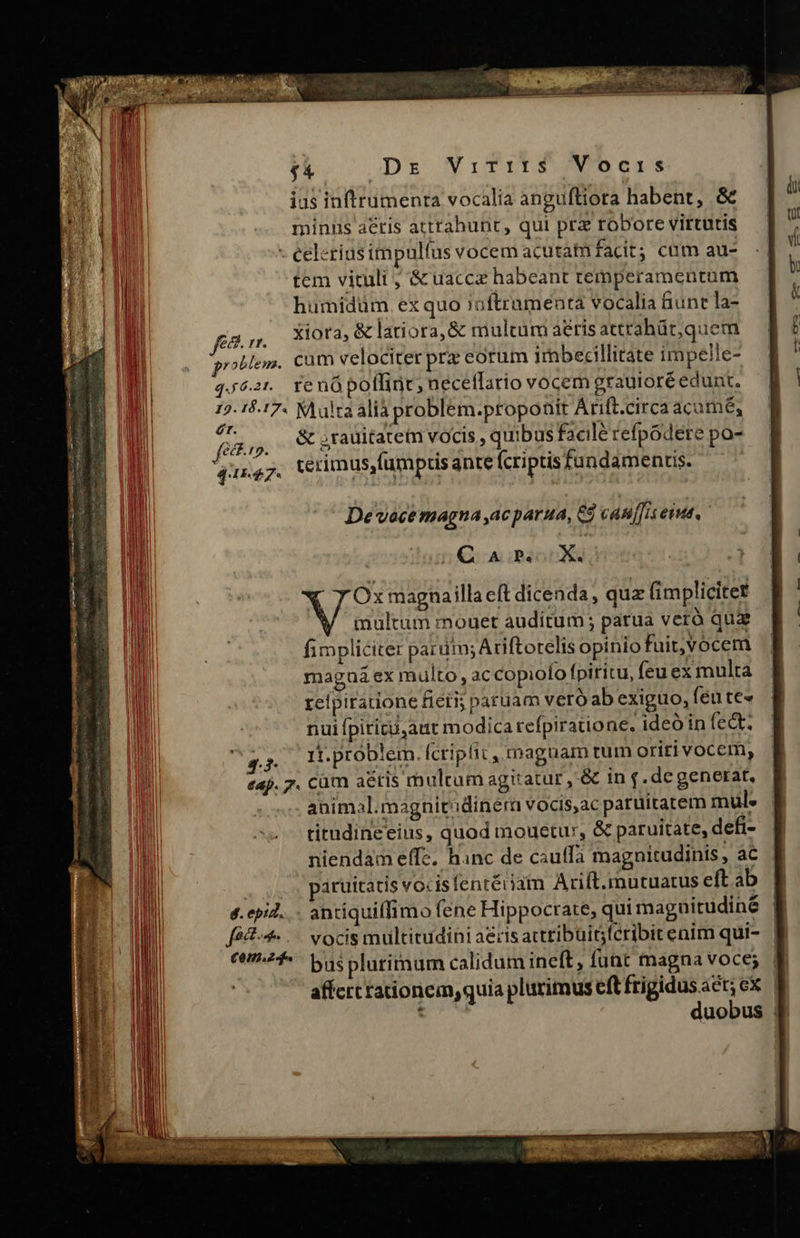 54 De Vitiis Vocis
ius inſtrumenta vocalia anguſtiora habent, &
minus aëris attrahunt, qui præ robore virtutis
celerius impulſus vocem acutam facit; cum au-
tem vituli, & uaccæ habeant temperamentum
humidum ex quo inſtrumenta vocalia fiunt la-
ſect. 11. xiora, & latiora, & multum aëris attrahūt, quem
problem. cum velociter præ eorum imbecillitate impelle-
q.56.21. re nō poſſint, neceſſario vocem grauiorē edunt.
19.18.17. Multa alia problem. proponit Ariſt. circa acumē,
& grauitatem vocis, quibus facilè reſpōdere po-
ſect. 19.
terimus, ſumptis ante ſcriptis fundamentis.
De voce magna, ac parua, & cauſſis eius.
Cap. X.
VOx magna illa eſt dicenda, quæ ſimpliciter
multum mouet auditum; parua verò quæ
ſimpliciter parùm; Ariſtotelis opinio fuit, vocem
magnā ex multo, ac copioſo ſpiritu, ſeu ex multa
reſpiratione fieri; paruam verò ab exiguo, ſeu te-
nui ſpiritu, aut modica reſpiratione. ideò in ſect.
q.3. 11. problem. ſcripſit, magnam tum oriri vocem,
cap. 7. cùm aëris multum agitatur, & in 5. de generat.
animal. magnitudinem vocis, ac paruitatem mul-
titudine eius, quod mouetur, & paruitate, defi-
niendam eſſe. hanc de cauſſa magnitudinis, ac
paruitatis vocis ſentētiam Ariſt. mutuatus eſt ab
6. epid. antiquiſſimo ſene Hippocrate, qui magnitudinē
ſect. 4. vocis multitudini aëris attribuit; ſcribit enim qui-
com. 24. bus plurimum calidum ineſt, ſunt magna voce;
affert rationem, quia plurimus eſt frigidus aër; ex
duobus